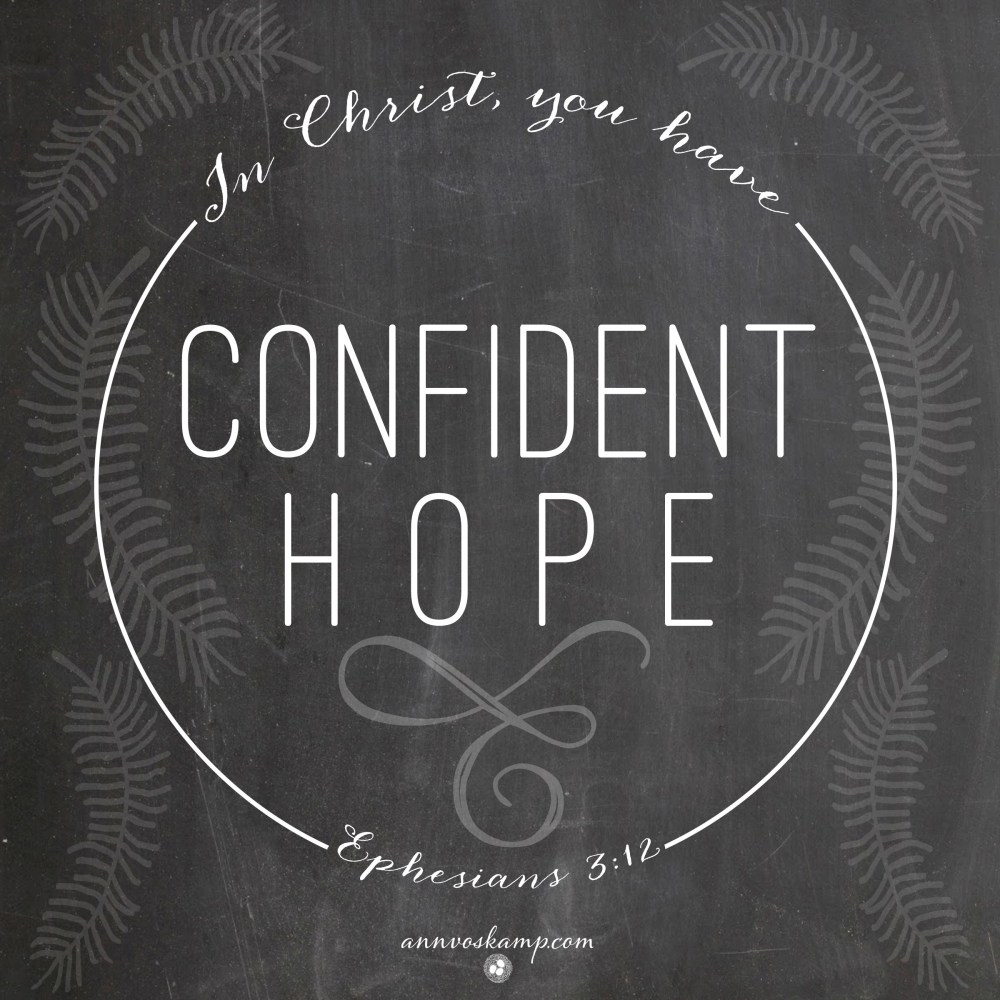 In Christ, you have
CONFIDENT
HOPE
Ephesians 3:12
annvoskamp.com